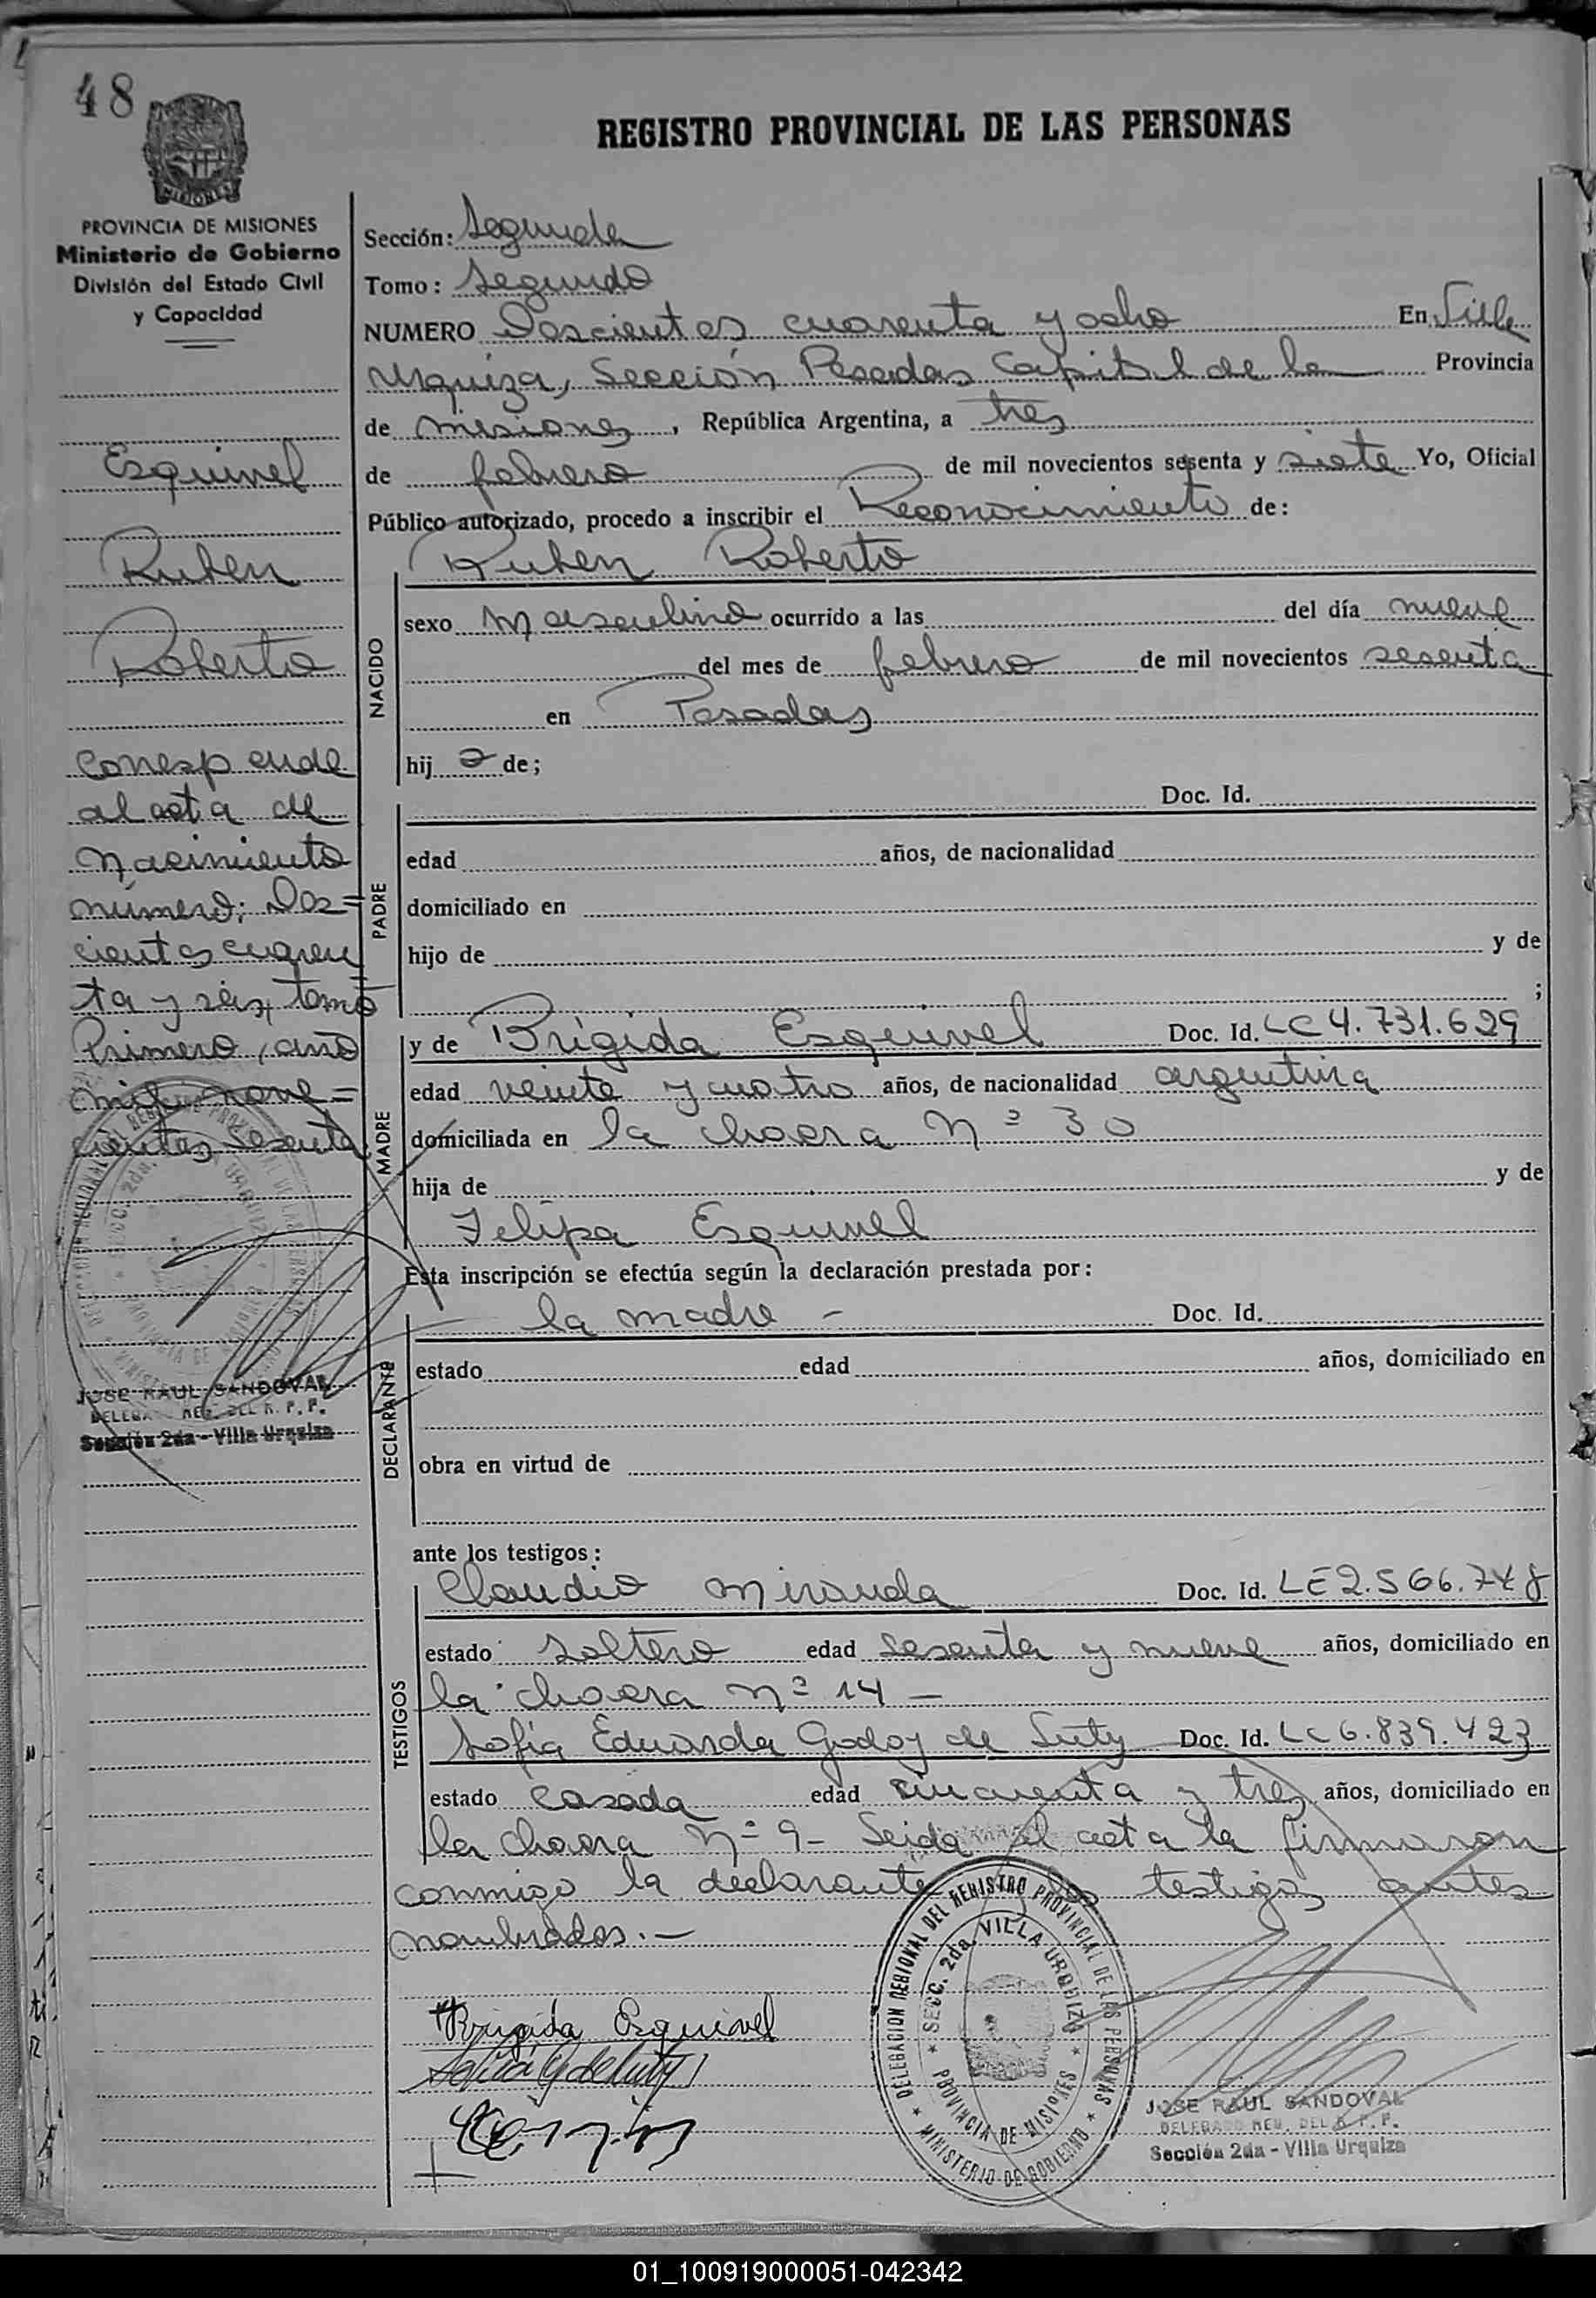 48
MISIONES
REGISTRO PROVINCIAL DE LAS PERSONAS
PROVINCIA DE MISIONES
Ministerio de Gobierno
División del Estado Civil
y Capacidad
Esquivel
Ruben
Roberto
Corresponde
al acta de
Nacimiento
número: Dos=
cientos cuaren
ta y seis, tomo
Primero, año
mil nove=
cientos sesenta
JOSE RAUL SANDOVAL
DELEGADO REG. DEL R. P. P.
Sección 2da - Villa Urquiza
Sección: Segunda
Tomo: Segundo
NUMERO Doscientos cuarenta y ocho En Villa
Urquiza, Sección Posadas Capital de la Provincia
de Misiones, República Argentina, a tres
de febrero de mil novecientos sesenta y siete Yo, Oficial
Público autorizado, procedo a inscribir el Reconocimiento de:
Ruben Roberto
NACIDO
sexo Masculino ocurrido a las del día nueve
del mes de febrero de mil novecientos sesenta
en Posadas
hij o de;
PADRE
Doc. Id.
edad años, de nacionalidad
domiciliado en
hijo de y de
;
MADRE
y de Brígida Esquivel Doc. Id. LC 4.731.629
edad veinte y cuatro años, de nacionalidad argentina
domiciliada en la chacra Nº 30
hija de y de
Felipa Esquivel
Esta inscripción se efectúa según la declaración prestada por:
DECLARANTE
la madre - Doc. Id.
estado edad años, domiciliado en
obra en virtud de
ante los testigos:
TESTIGOS
Claudio Miranda Doc. Id. LE 2.566.748
estado soltero edad sesenta y nueve años, domiciliado en
la chacra Nº 14 -
Sofía Eduarda Godoy de Suty Doc. Id. LC 6.839.423
estado casada edad cincuenta y tres años, domiciliado en
la chacra Nº 9 - Leida el acta la firmaron
conmigo la declarante los testigos antes
nombrados. -
Brigida Esquivel
DELEGACION REGIONAL DEL REGISTRO PROVINCIAL DE LAS PERSONAS
SECC. 2da. VILLA URQUIZA
PROVINCIA DE MISIONES
MINISTERIO DE GOBIERNO
JOSE RAUL SANDOVAL
DELEGADO REG. DEL R. P. P.
Sección 2da - Villa Urquiza
01_100919000051-042342